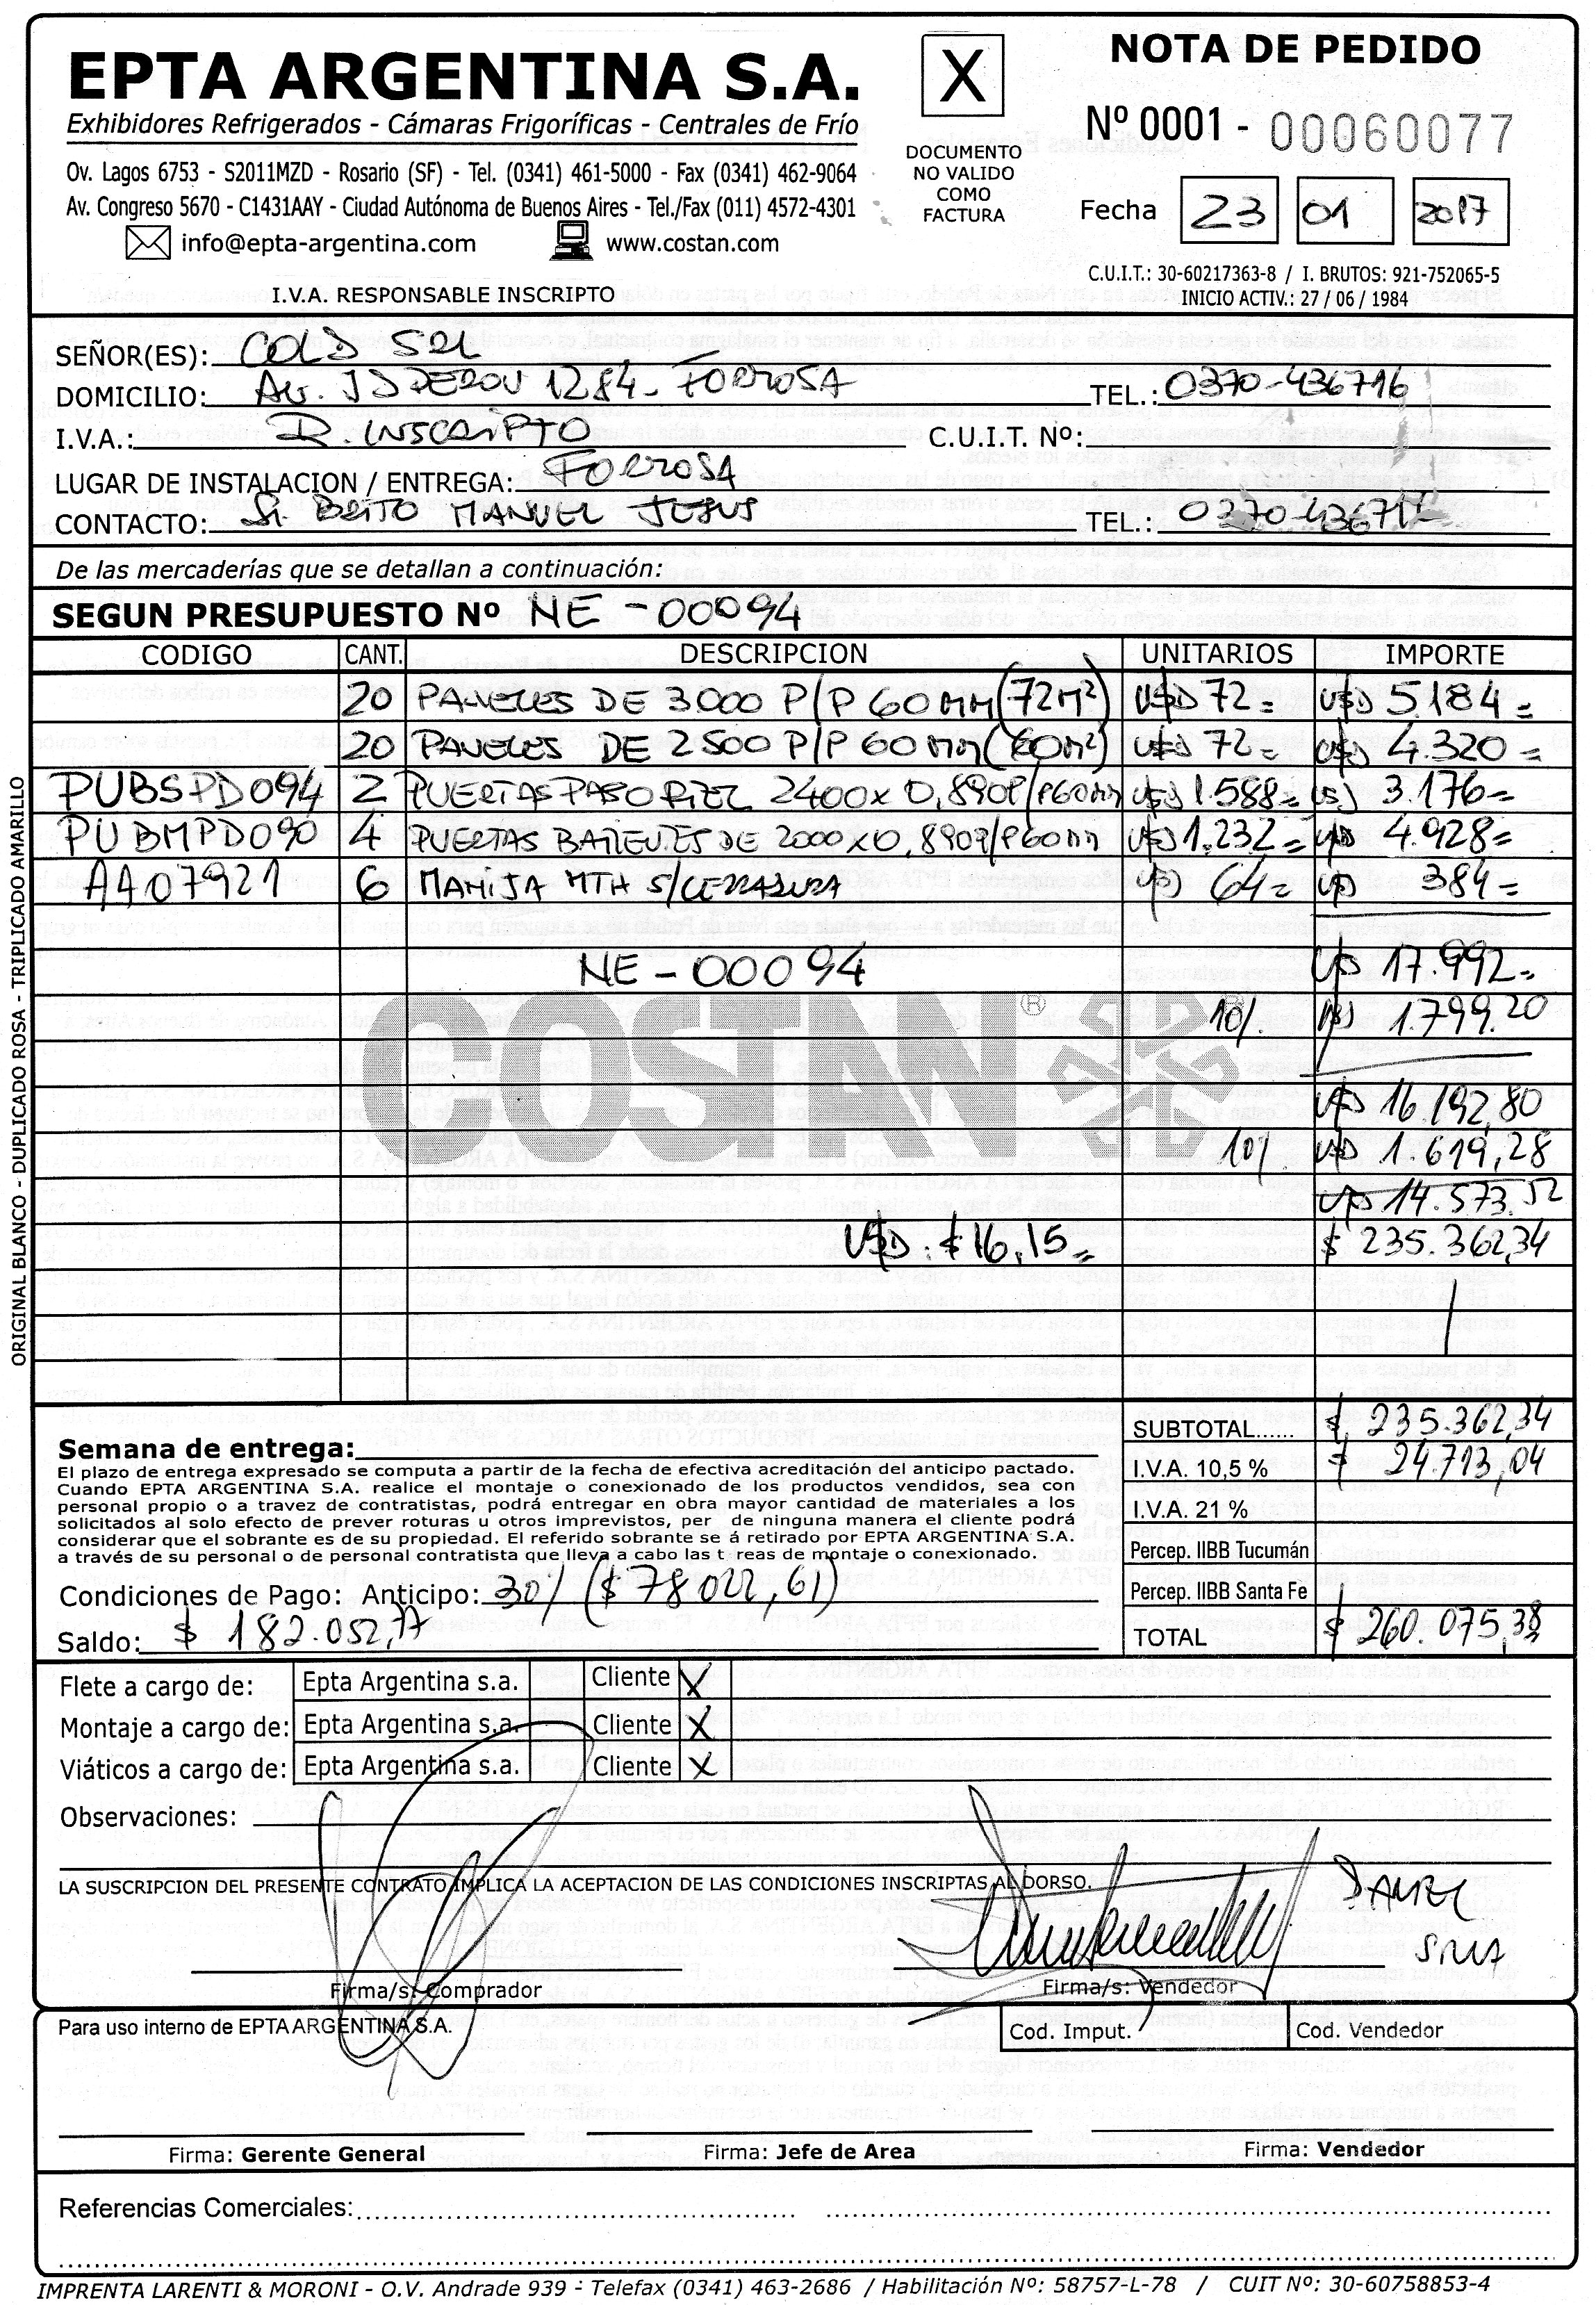 EPTA ARGENTINA S.A.
Exhibidores Refrigerados - Cámaras Frigoríficas - Centrales de Frío
Ov. Lagos 6753 - S2011MZD - Rosario (SF) - Tel. (0341) 461-5000 - Fax (0341) 462-9064
Av. Congreso 5670 - C1431AAY - Ciudad Autónoma de Buenos Aires - Tel./Fax (011) 4572-4301
info@epta-argentina.com www.costan.com
I.V.A. RESPONSABLE INSCRIPTO
X
DOCUMENTO
NO VALIDO
COMO
FACTURA
NOTA DE PEDIDO
Nº 0001 - 00060077
Fecha 23 01 2017
C.U.I.T.: 30-60217363-8 / I. BRUTOS: 921-752065-5
INICIO ACTIV.: 27 / 06 / 1984
SEÑOR(ES): SRL
DOMICILIO: AV. JD PERON 1284 - FORMOSA TEL.: 0370-436716
I.V.A.: R. INSCRIPTO C.U.I.T. Nº:
LUGAR DE INSTALACION / ENTREGA: FORMOSA
CONTACTO: Sr BRITO MANUEL JESUS TEL.: 0370-43671
De las mercaderías que se detallan a continuación:
SEGUN PRESUPUESTO Nº NE - 00094
CODIGO CANT. DESCRIPCION UNITARIOS IMPORTE
20 PANELES DE 3000 P/P 60MM (72M²) U$D 72= U$D 5.184=
20 PANELES DE 2500 P/P 60MM (60M²) U$D 72= U$D 4.320=
PUBSPD094 2 PUERTAS PASO RIEL 2400x0,890P/P60MM U$D 1.588= U$D 3.176=
PUBMPD090 4 PUERTAS BATIENTES DE 2000x0,890P/P60MM U$D 1.232= U$D 4.928=
AA07921 6 MANIJA MTH S/CERRADURA U$D 64= U$D 384=
NE - 00094 U$D 17.992=
COSTAN ®
10% U$D 1.799.20
U$D 16.192,80
10% U$D 1.619,28
U$D 14.573.52
U$D: $16,15= $ 235.362,34
ORIGINAL BLANCO - DUPLICADO ROSA - TRIPLICADO AMARILLO
Semana de entrega:
El plazo de entrega expresado se computa a partir de la fecha de efectiva acreditación del anticipo pactado.
Cuando EPTA ARGENTINA S.A. realice el montaje o conexionado de los productos vendidos, sea con
personal propio o a travez de contratistas, podrá entregar en obra mayor cantidad de materiales a los
solicitados al solo efecto de prever roturas u otros imprevistos, per de ninguna manera el cliente podrá
considerar que el sobrante es de su propiedad. El referido sobrante se á retirado por EPTA ARGENTINA S.A.
a través de su personal o de personal contratista que lleva a cabo las t reas de montaje o conexionado.
Condiciones de Pago: Anticipo: 30% ($ 78022,61)
Saldo: $ 182.052,77
SUBTOTAL...... $ 235.362,34
I.V.A. 10,5 % $ 24.713,04
I.V.A. 21 %
Percep. IIBB Tucumán
Percep. IIBB Santa Fe
TOTAL $ 260.075,38
Flete a cargo de: Epta Argentina s.a. Cliente X
Montaje a cargo de: Epta Argentina s.a. Cliente X
Viáticos a cargo de: Epta Argentina s.a. Cliente X
Observaciones:
LA SUSCRIPCION DEL PRESENTE CONTRATO IMPLICA LA ACEPTACION DE LAS CONDICIONES INSCRIPTAS AL DORSO.
DANIEL
SILVA
Firma/s: Comprador Firma/s: Vendedor
Para uso interno de EPTA ARGENTINA S.A. Cod. Imput. Cod. Vendedor
Firma: Gerente General Firma: Jefe de Area Firma: Vendedor
Referencias Comerciales:
IMPRENTA LARENTI & MORONI - O.V. Andrade 939 - Telefax (0341) 463-2686 / Habilitación Nº: 58757-L-78 / CUIT Nº: 30-60758853-4